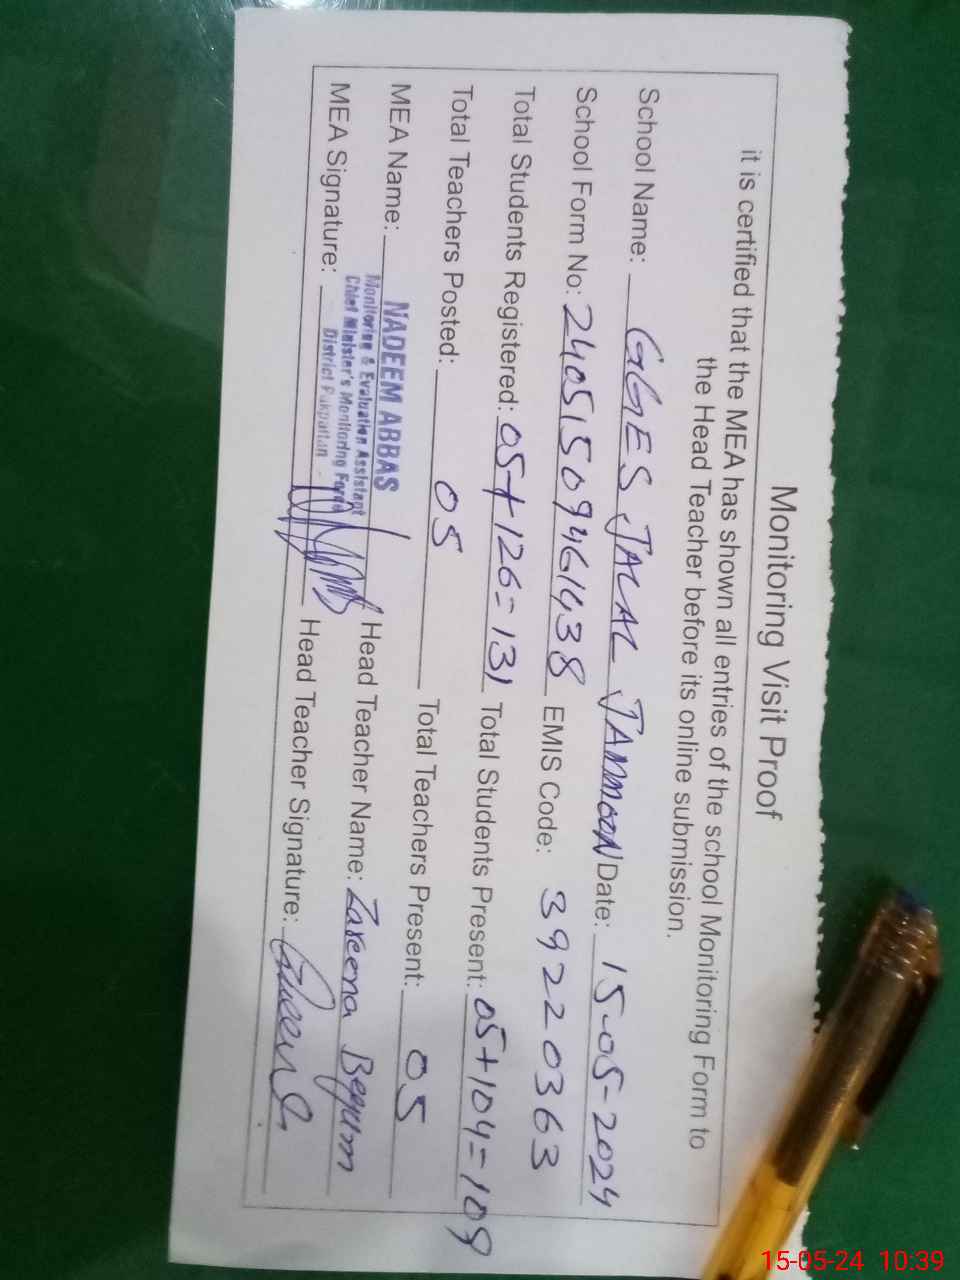 Monitoring Visit Proof
it is certified that the MEA has shown all entries of the school Monitoring Form to
the Head Teacher before its online submission.
School Name: GGES JALAL JAMMOON Date: 15-05-2024
School Form No: 24051509461438 EMIS Code: 39220363
Total Students Registered: 05+126=131 Total Students Present: 05+104=109
Total Teachers Posted: 05 Total Teachers Present: 05
MEA Name: NADEEM ABBAS Head Teacher Name: Zareena Begum
Monitoring & Evaluation Assistant
Chief Minister's Monitoring Force
District Pakpattan
MEA Signature: Head Teacher Signature:
15-05-24 10:39